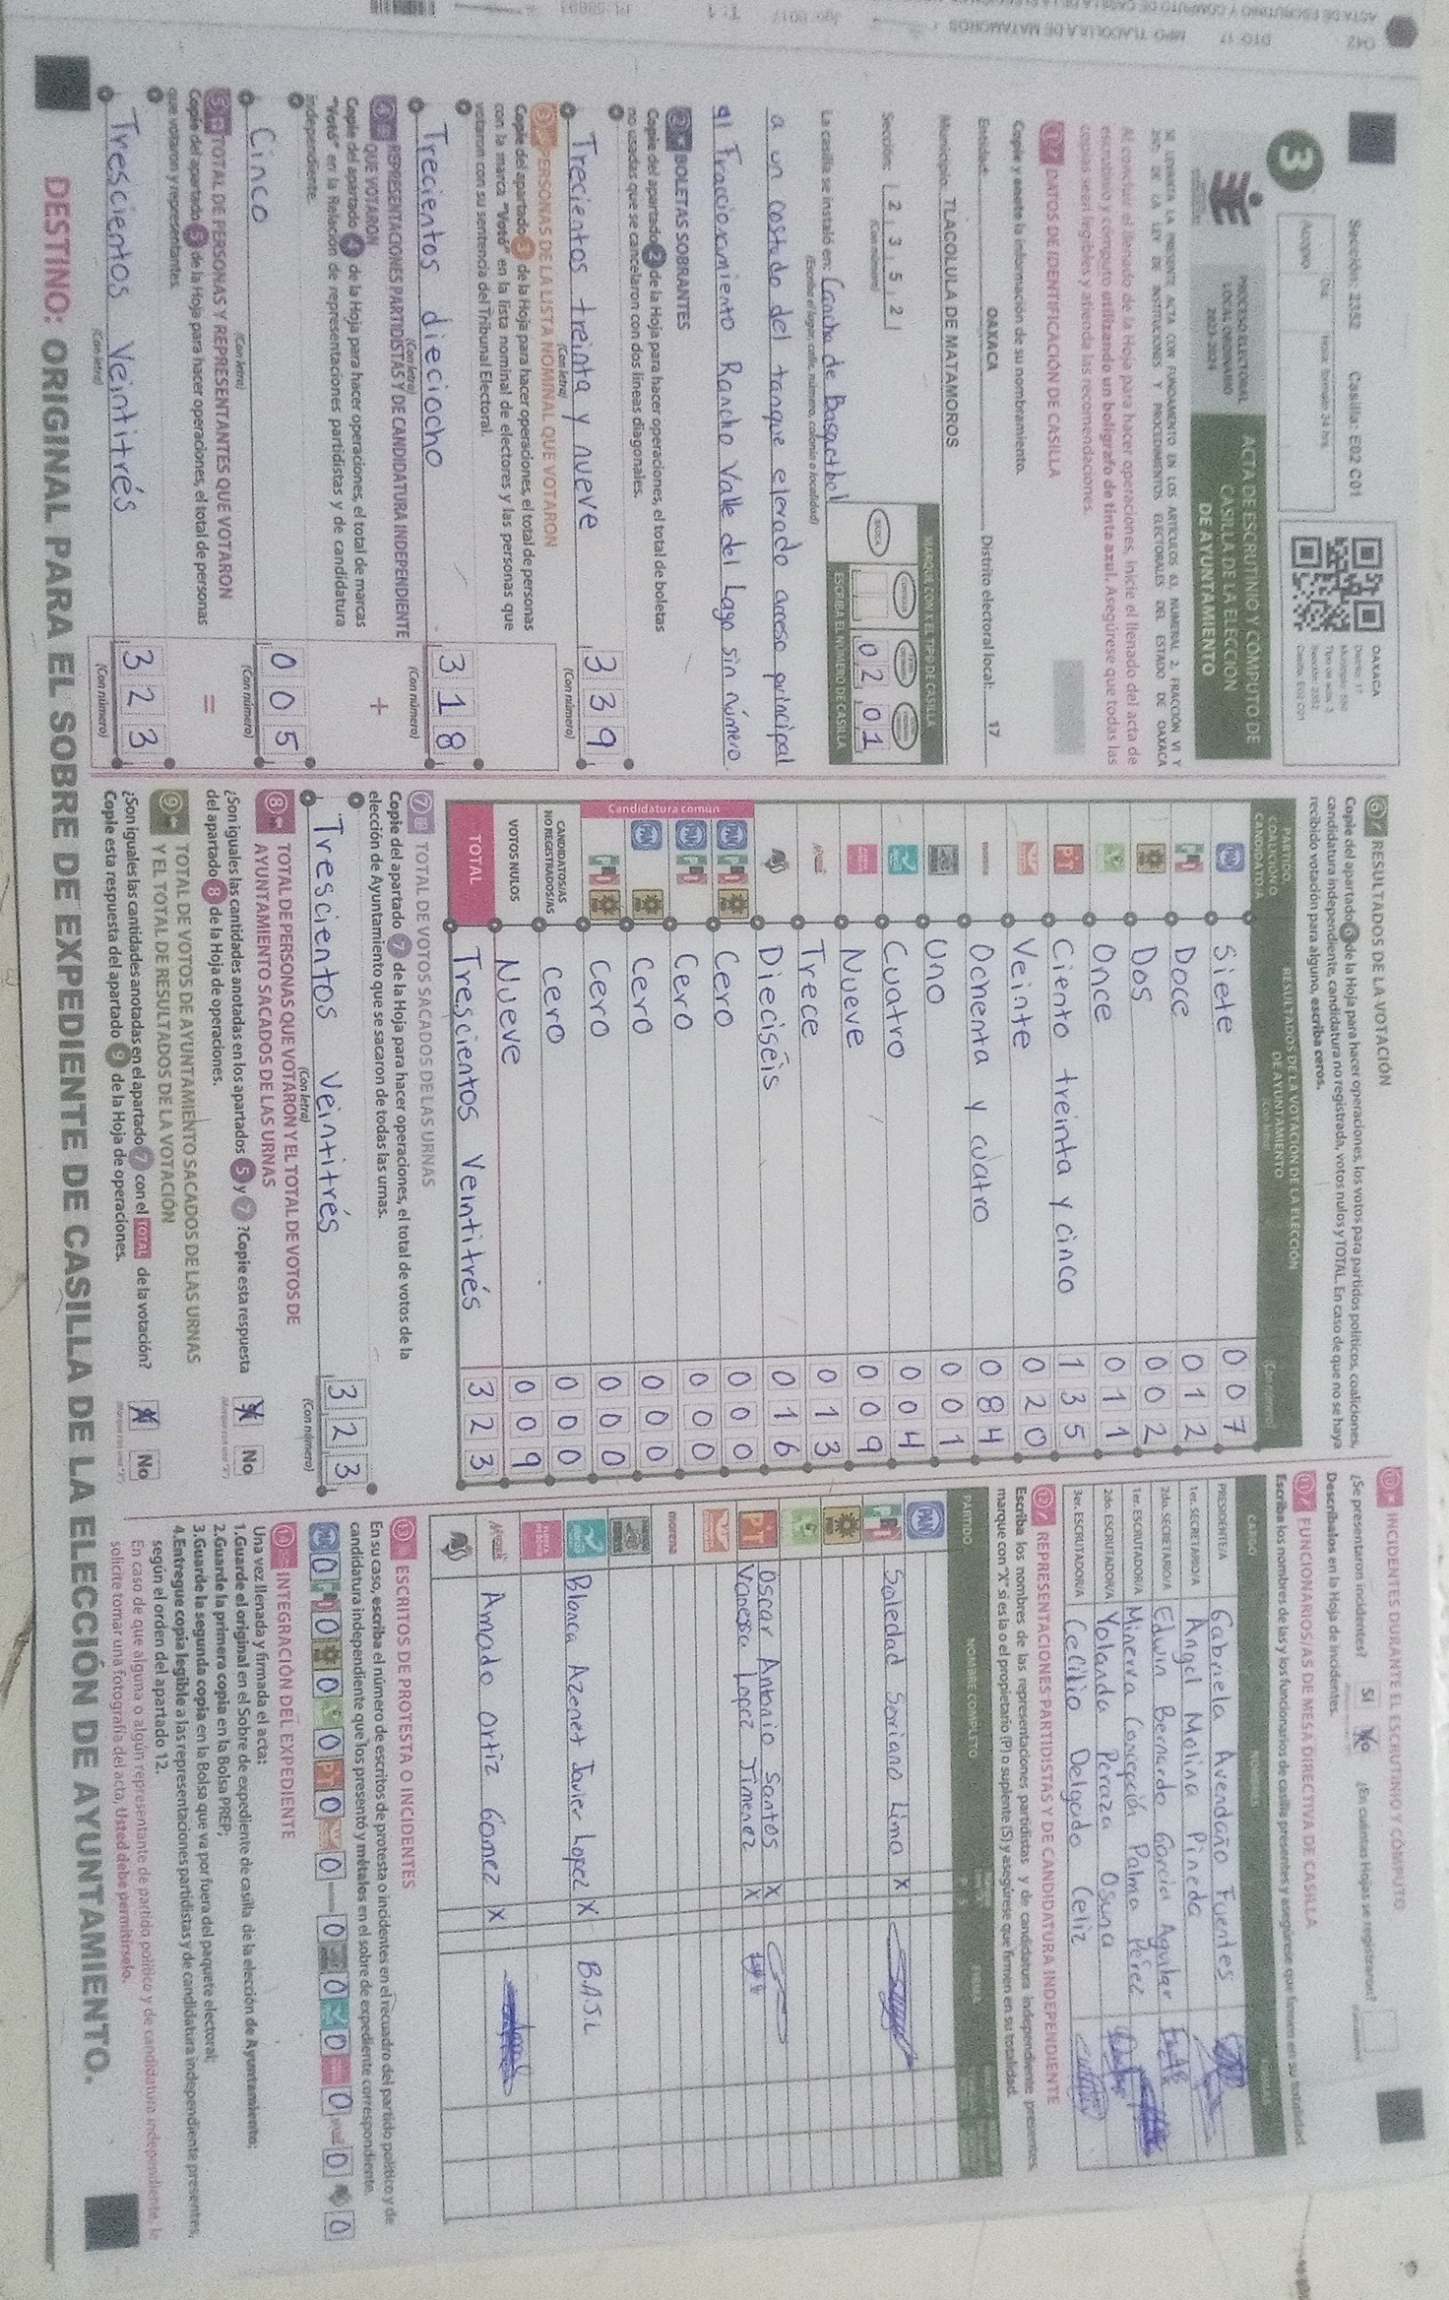 Sección: 2352 Casilla: E02 C01
3
Acopio
Día:
Hora: formato 24 hrs
OAXACA
PROCESO ELECTORAL
LOCAL ORDINARIO
2023-2024
ACTA DE ESCRUTINIO Y CÓMPUTO DE
CASILLA DE LA ELECCIÓN
DE AYUNTAMIENTO
SE LEVANTA LA PRESENTE ACTA CON FUNDAMENTO EN LOS ARTÍCULOS 63, NUMERAL 2, FRACCIÓN VI Y
DE LA LEY DE INSTITUCIONES Y PROCEDIMIENTOS ELECTORALES DEL ESTADO DE OAXACA
Al concluir el llenado de la Hoja para hacer operaciones, inicie el llenado del acta de
escrutinio y cómputo utilizando un bolígrafo de tinta azul. Asegúrese que todas las
copias sean legibles y atienda las recomendaciones.
1 DATOS DE IDENTIFICACIÓN DE CASILLA
Copie y anote la información de su nombramiento.
Entidad: OAXACA Distrito electoral local: 17
Municipio: TLACOLULA DE MATAMOROS
Sección: 2 3 5 2
(Con número)
MARQUE CON X EL TIPO DE CASILLA
BÁSICA
02 01
ESCRIBA EL NÚMERO DE CASILLA
La casilla se instaló en: Cancha de Basquetbol
(Escriba el lugar, calle, número, colonia o localidad)
a un costado del tanque elevado acceso principal
al Fraccionamiento Rancho Valle del Lago sin número.
2 BOLETAS SOBRANTES
Copie del apartado 2 de la Hoja para hacer operaciones, el total de boletas
no usadas que se cancelaron con dos líneas diagonales.
Trecientos treinta y nueve 3 3 9
(Con letra) (Con número)
3 PERSONAS DE LA LISTA NOMINAL QUE VOTARON
Copie del apartado 3 de la Hoja para hacer operaciones, el total de personas
con la marca "Votó" en la lista nominal de electores y las personas que
votaron con su sentencia del Tribunal Electoral.
Trecientos dieciocho 3 1 8
(Con letra) (Con número)
4 REPRESENTACIONES PARTIDISTAS Y DE CANDIDATURA INDEPENDIENTE
QUE VOTARON
+
Copie del apartado 4 de la Hoja para hacer operaciones, el total de marcas
"Votó" en la Relación de representaciones partidistas y de candidatura
independiente.
Cinco 0 0 5
(Con letra) (Con número)
5 TOTAL DE PERSONAS Y REPRESENTANTES QUE VOTARON
=
Copie del apartado 5 de la Hoja para hacer operaciones, el total de personas
que votaron y representantes.
Trescientos Veintitrés 3 2 3
(Con letra) (Con número)
6 RESULTADOS DE LA VOTACIÓN
Copie del apartado 6 de la Hoja para hacer operaciones, los votos para partidos políticos, coaliciones,
candidatura independiente, candidatura no registrada, votos nulos y TOTAL. En caso de que no se haya
recibido votación para alguno, escriba ceros.
PARTIDO,
COALICIÓN O
CANDIDATO/A
RESULTADOS DE LA VOTACIÓN DE LA ELECCIÓN
DE AYUNTAMIENTO
(Con letra) (Con número)
PAN Siete 0 0 7
PRI Doce 0 1 2
PRD Dos 0 0 2
Once 0 1 1
PT Ciento treinta y cinco 1 3 5
Veinte 0 2 0
morena Ochenta y cuatro 0 8 4
Uno 0 0 1
Cuatro 0 0 4
Nueve 0 0 9
Trece 0 1 3
Dieciséis 0 1 6
Candidatura común
PAN PRI PRD Cero 0 0 0
PAN PRI Cero 0 0 0
PAN PRD Cero 0 0 0
PRI PRD Cero 0 0 0
CANDIDATOS/AS
NO REGISTRADOS/AS Cero 0 0 0
VOTOS NULOS Nueve 0 0 9
TOTAL Trescientos Veintitrés 3 2 3
7 TOTAL DE VOTOS SACADOS DE LAS URNAS
Copie del apartado 7 de la Hoja para hacer operaciones, el total de votos de la
elección de Ayuntamiento que se sacaron de todas las urnas.
Trescientos Veintitrés 3 2 3
(Con letra) (Con número)
8 TOTAL DE PERSONAS QUE VOTARON Y EL TOTAL DE VOTOS DE
AYUNTAMIENTO SACADOS DE LAS URNAS
¿Son iguales las cantidades anotadas en los apartados 5 y 7 ?Copie esta respuesta
del apartado 8 de la Hoja de operaciones.
Sí No
9 TOTAL DE VOTOS DE AYUNTAMIENTO SACADOS DE LAS URNAS
Y EL TOTAL DE RESULTADOS DE LA VOTACIÓN
¿Son iguales las cantidades anotadas en el apartado 7 con el TOTAL de la votación?
Copie esta respuesta del apartado 9 de la Hoja de operaciones.
Sí No
10 INCIDENTES DURANTE EL ESCRUTINIO Y CÓMPUTO
¿Se presentaron incidentes? Sí No ¿En cuántas Hojas se registraron?
Descríbalos en la Hoja de incidentes.
11 FUNCIONARIOS/AS DE MESA DIRECTIVA DE CASILLA
Escriba los nombres de las y los funcionarios de casilla presentes y asegúrese que firmen en su totalidad.
CARGO NOMBRES
PRESIDENTE/A Gabriela Avendaño Fuentes
1er. SECRETARIO/A Angel Molina Pineda
2do. SECRETARIO/A Edwin Bernardo Garcia Aguilar
1er. ESCRUTADOR/A Minerva Concepción Palma Pérez
2do. ESCRUTADOR/A Yolanda Peraza Osuna
3er. ESCRUTADOR/A Cecilio Delgado Celiz
12 REPRESENTACIONES PARTIDISTAS Y DE CANDIDATURA INDEPENDIENTE
Escriba los nombres de las representaciones partidistas y de candidatura independiente presentes,
marque con "X" si es la o el propietario (P) o suplente (S) y asegúrese que firmen en su totalidad.
PARTIDO NOMBRE COMPLETO FIRMA
PAN
PRI Soledad Soriano Lima X
PRD
PT Oscar Antonio Santos X
Vanessa Lopez Jimenez X
morena
Blanca Azenet Javier Lopez X BAJL
Amado Ortiz Gomez X
13 ESCRITOS DE PROTESTA O INCIDENTES
En su caso, escriba el número de escritos de protesta o incidentes en el recuadro del partido político y de
candidatura independiente que los presentó y métalos en el sobre de expediente correspondiente.
PAN 0 PRI 0 0 0 PT 0 0 0 0 0 0 0 0
14 INTEGRACIÓN DEL EXPEDIENTE
Una vez llenada y firmada el acta:
1.Guarde el original en el Sobre de expediente de casilla de la elección de Ayuntamiento;
2.Guarde la primera copia en la Bolsa PREP;
3.Guarde la segunda copia en la Bolsa que va por fuera del paquete electoral;
4.Entregue copia legible a las representaciones partidistas y de candidatura independiente presentes,
según el orden del apartado 12.
En caso de que alguna o algún representante de partido político y de candidatura independiente, le
solicite tomar una fotografía del acta, usted debe permitírselo.
DESTINO: ORIGINAL PARA EL SOBRE DE EXPEDIENTE DE CASILLA DE LA ELECCIÓN DE AYUNTAMIENTO.